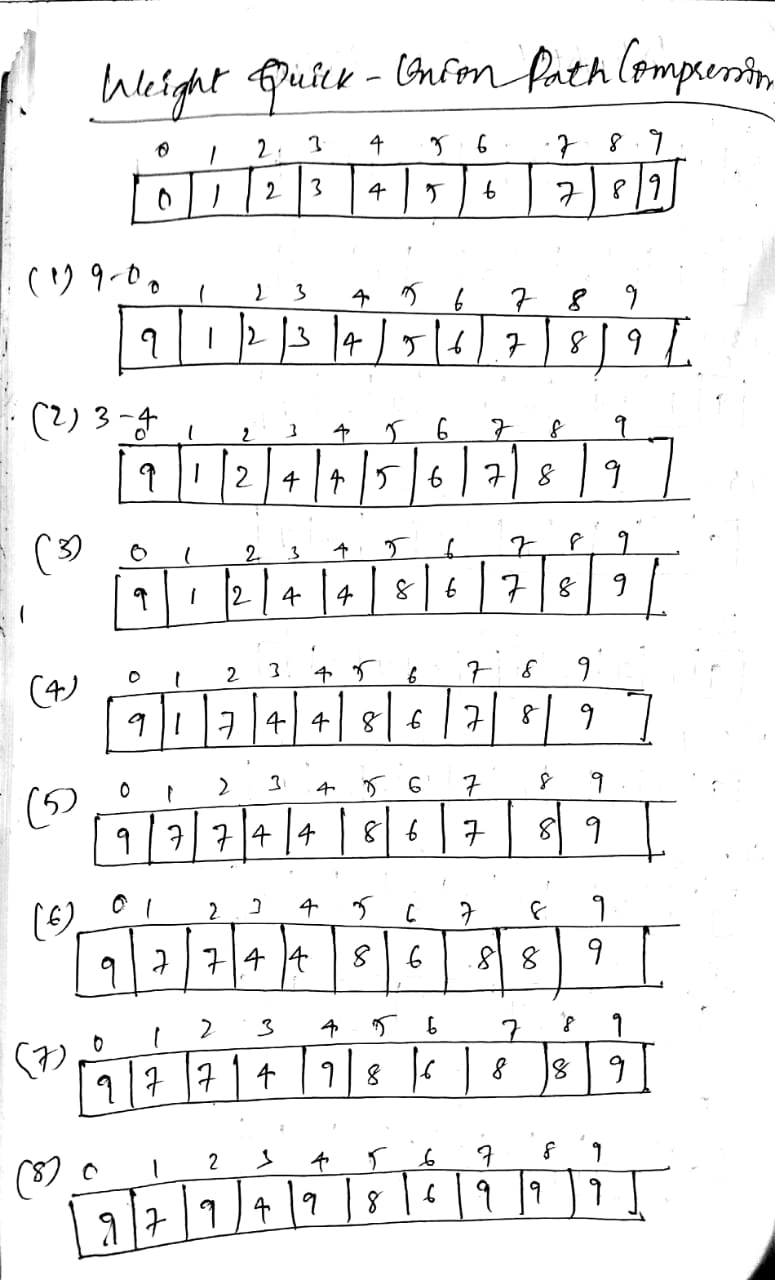 Weight Quick - Union Path Compression
0 1 2 3 4 5 6 7 8 9
0 1 2 3 4 5 6 7 8 9
(1) 9-0
0 1 2 3 4 5 6 7 8 9
9 1 2 3 4 5 6 7 8 9
(2) 3-4
0 1 2 3 4 5 6 7 8 9
9 1 2 4 4 5 6 7 8 9
(3) 0 1 2 3 4 5 6 7 8 9
9 1 2 4 4 8 6 7 8 9
(4) 0 1 2 3 4 5 6 7 8 9
9 1 7 4 4 8 6 7 8 9
(5) 0 1 2 3 4 5 6 7 8 9
9 7 7 4 4 8 6 7 8 9
(6) 0 1 2 3 4 5 6 7 8 9
9 7 7 4 4 8 6 8 8 9
(7) 0 1 2 3 4 5 6 7 8 9
9 7 7 4 9 8 6 8 8 9
(8) 0 1 2 3 4 5 6 7 8 9
9 7 9 4 9 8 6 9 9 9